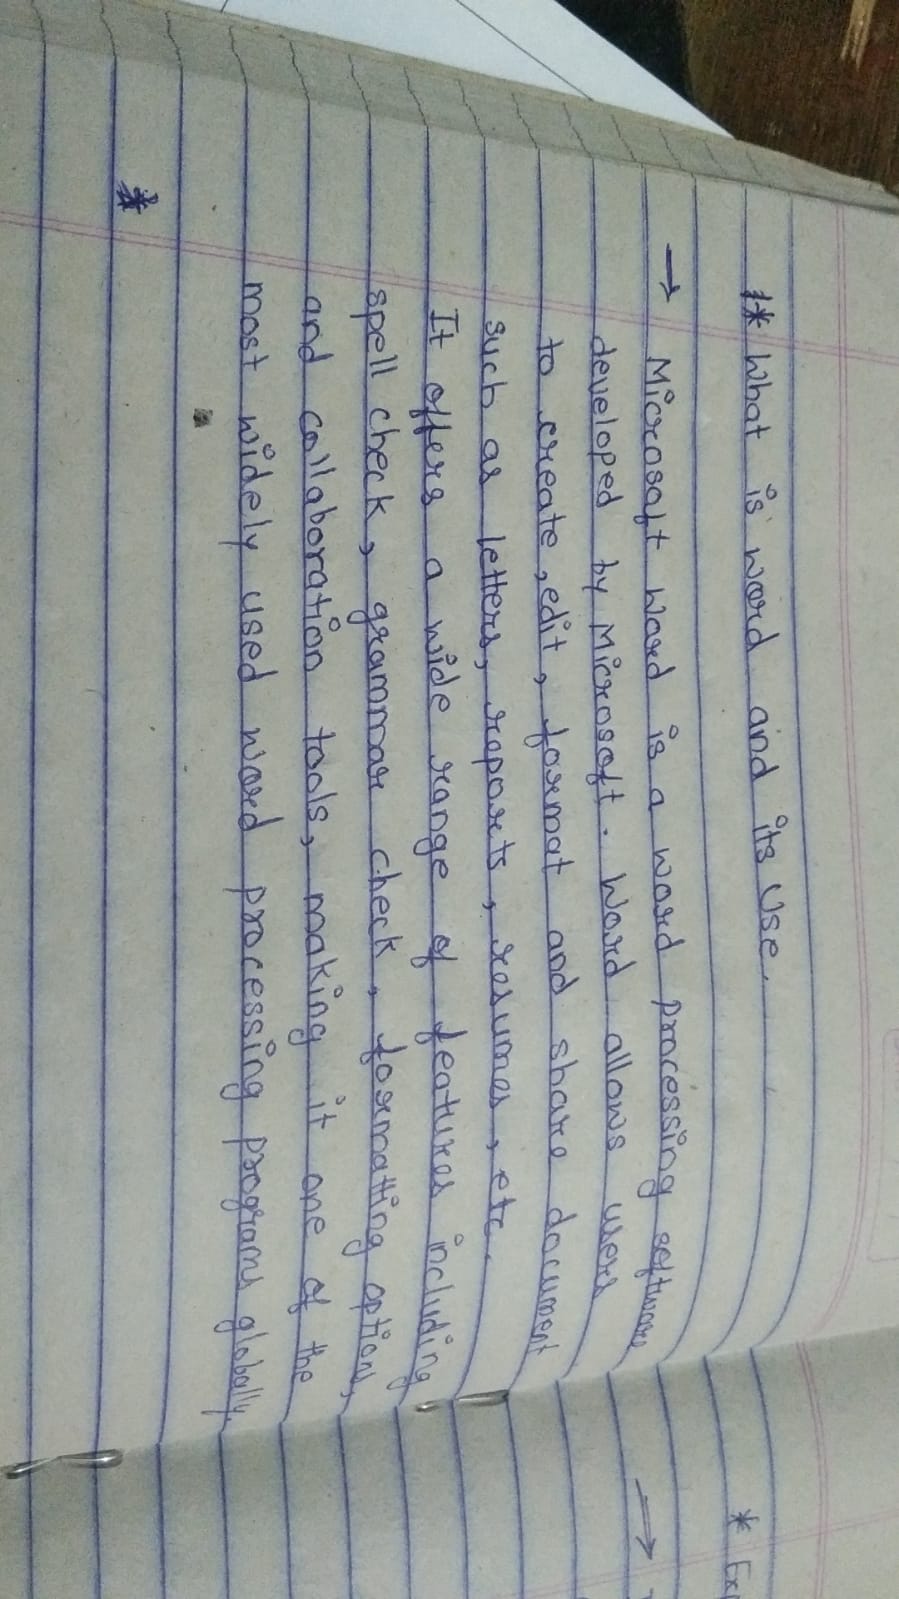 1* What is word and its Use.
→ Microsoft Word is a word processing software
developed by Microsoft. Word allows users
to create, edit, format and share document
such as letters, reports, resumes, etc.
It offers a wide range of features including
spell check, grammar check, formatting options,
and collaboration tools, making it one of the
most widely used word processing programs globally.
*
* Exp
→